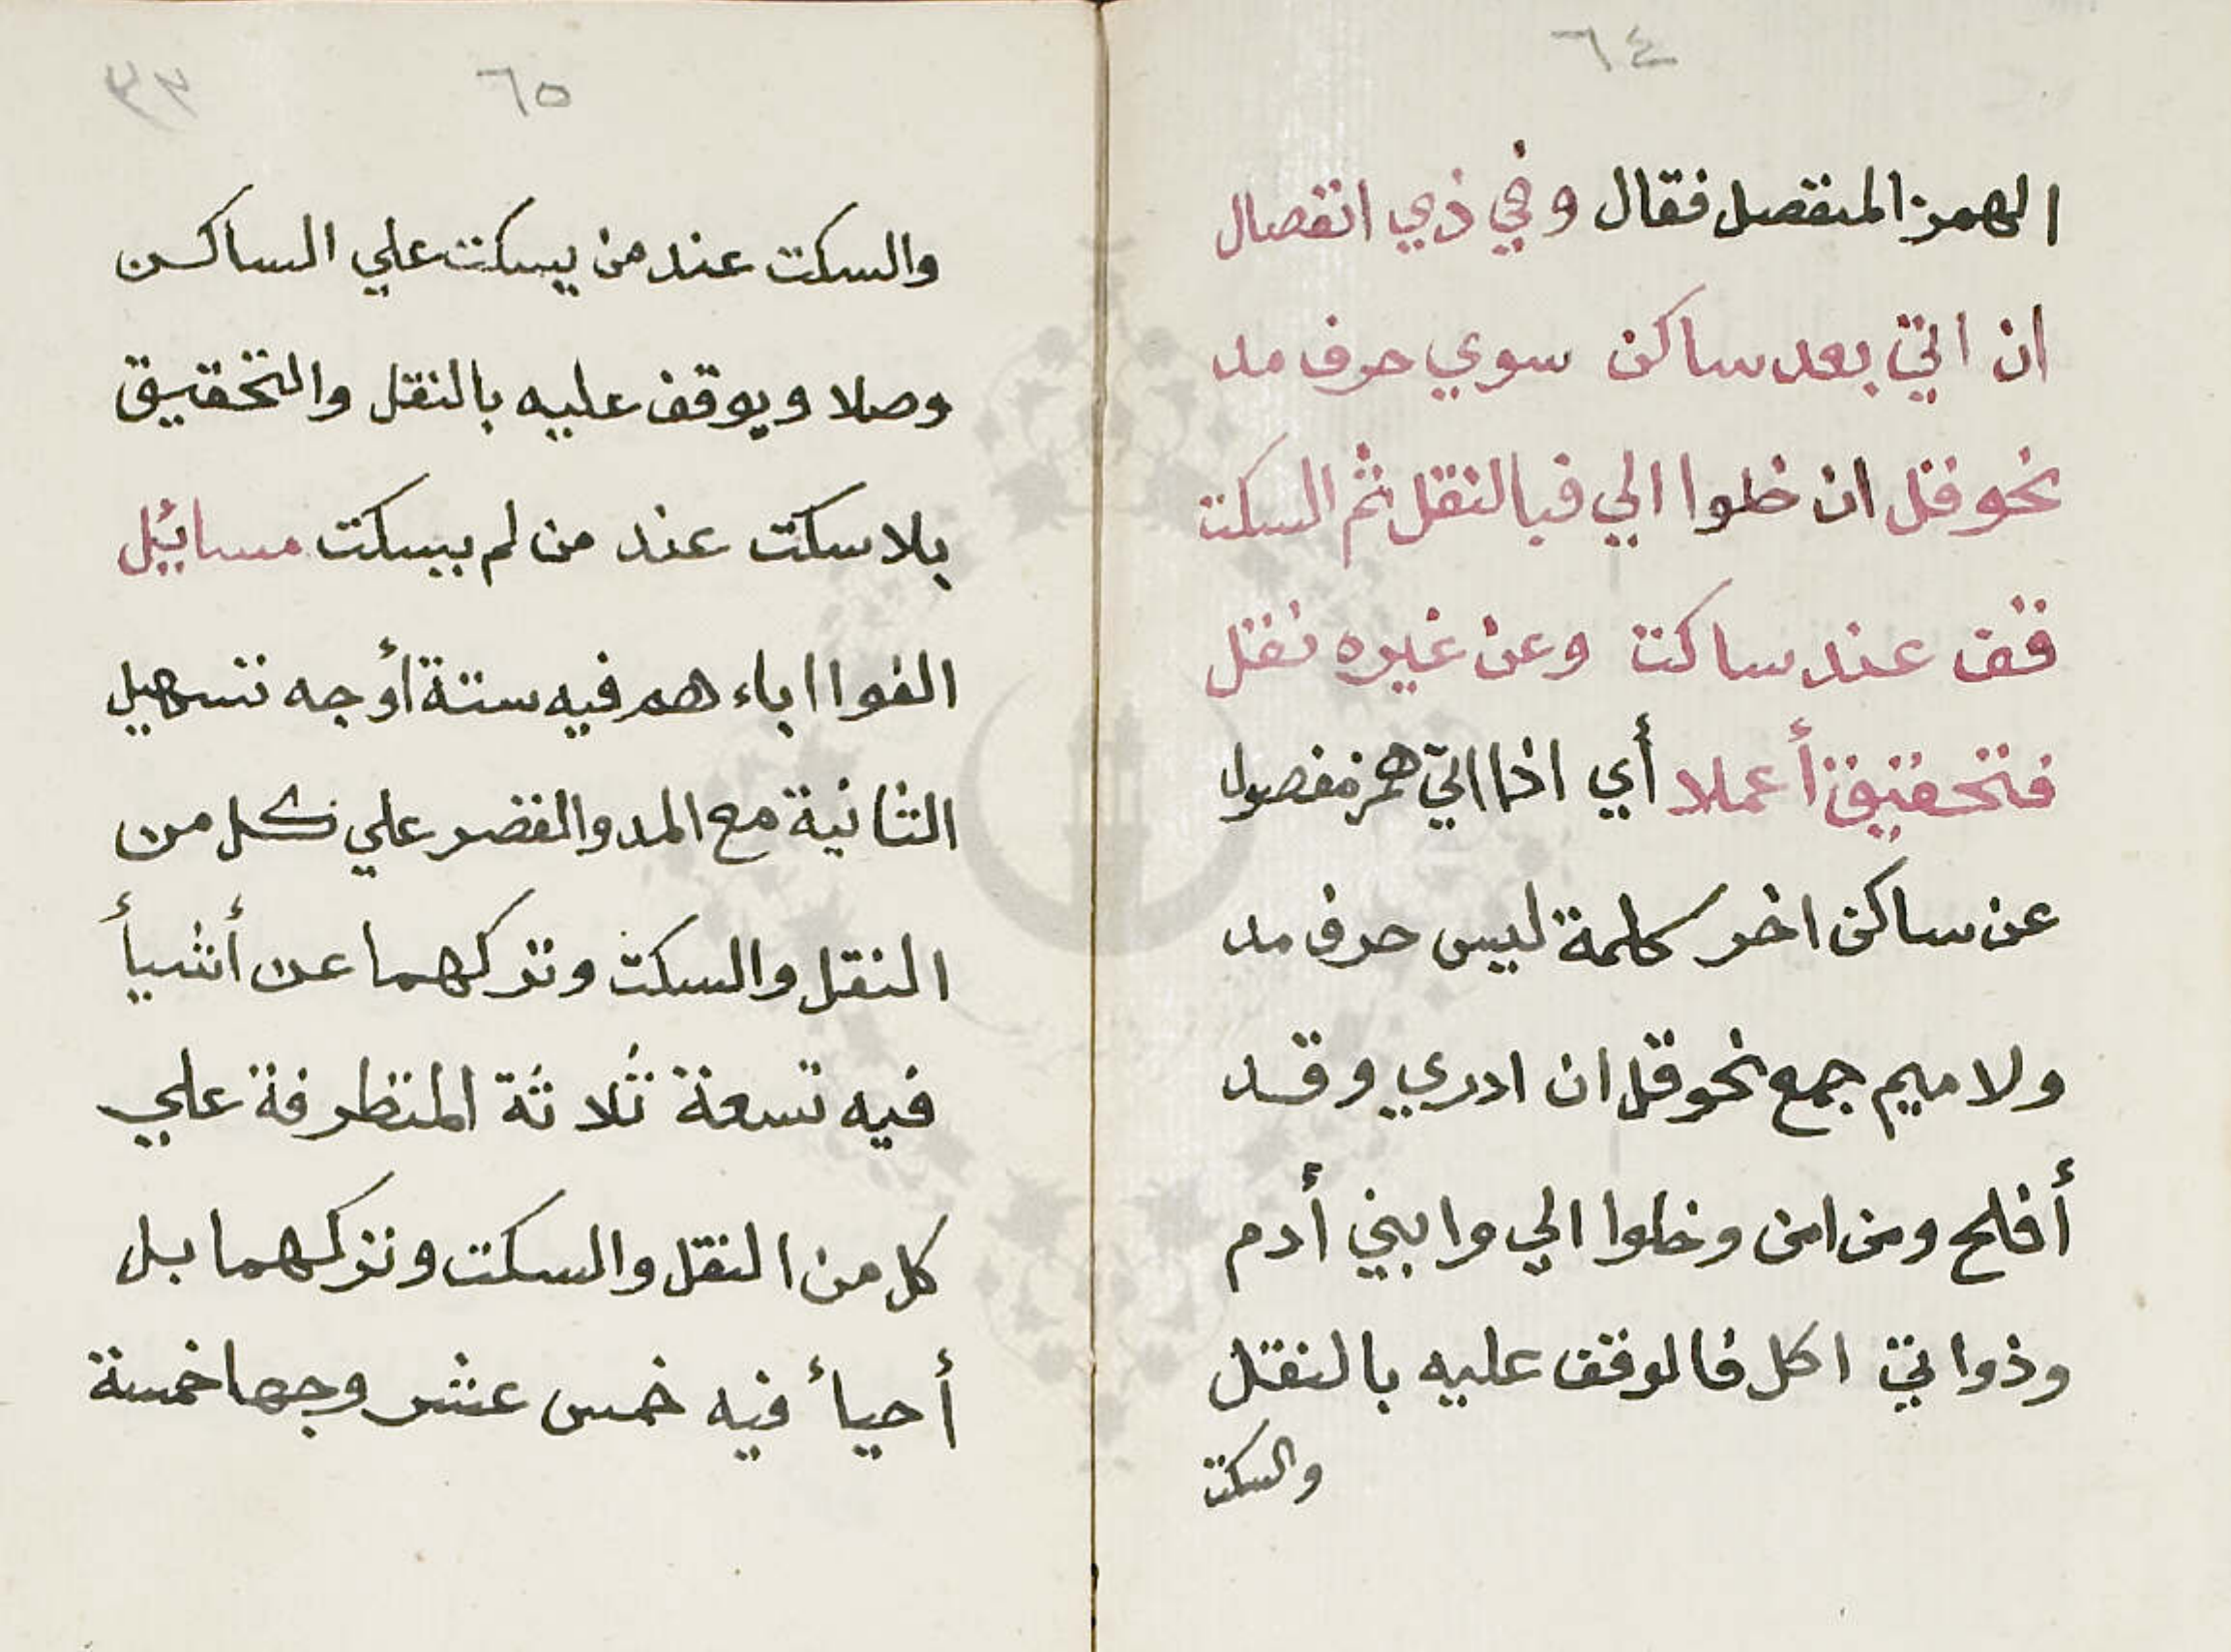 ٦٤
الهمز المنفصل فقال وفي ذي انفصال
ان اتي بعد ساكن سوي حرف مد
نحو قل ان خلوا الي فبالنقل ثم السكت
قف عند ساكت وعن غيره نقل
فتحقيق أعملا أي اذا اتي همز مفصول
عن ساكن اخر كلمة ليس حرف مد
ولا ميم جمع نحو قل ان ادري وقد
أفلح ومن امن وخلوا الي وابني أدم
وذواتي اكل فالوقف عليه بالنقل
والسكت
٦٥
٣٣
والسكت عند من يسكت علي الساكن
وصلا ويوقف عليه بالنقل والتحقيق
بلا سكت عند من لم يسكت مسائل
الفوا اباءهم فيه ستة أوجه تسهيل
الثانية مع المد والقصر علي كل من
النقل والسكت وتركهما عن أشيأ
فيه تسعة ثلاثة المتطرفة علي
كل من النقل والسكت وتركهما بل
أحيأ فيه خمس عشر وجها خمسة